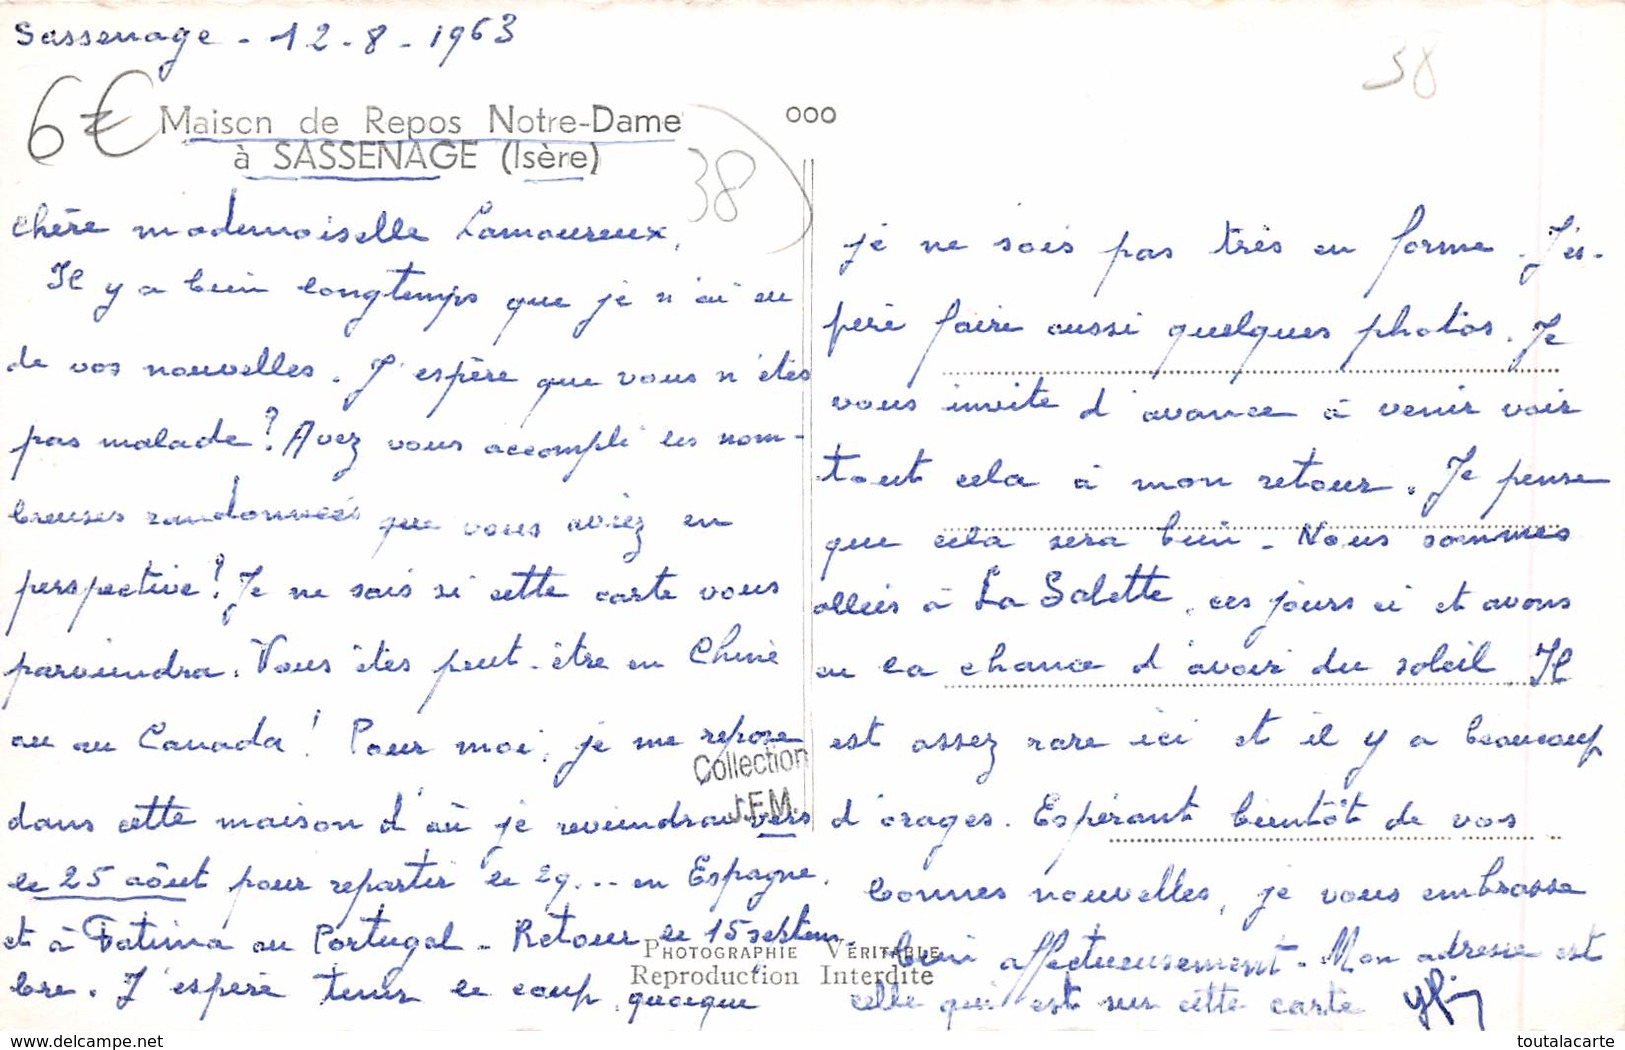 Sassenage - 12-8-1963
38
6€
Maison de Repos Notre-Dame
à SASSENAGE (Isère)
38
ooo
Chère mademoiselle Lamoureux,
Il y a bien longtemps que je n'ai eu
de vos nouvelles. J'espère que vous n'êtes
pas malade? Avez vous accompli les nom-
breuses randonnées que vous aviez en
perspective? Je ne sais si cette carte vous
parviendra. Vous êtes peut-être en Chine
ou au Canada! Pour moi, je me repose
dans cette maison d'où je reviendrai vers
le 25 août pour repartir le 29... en Espagne.
et à Fatima au Portugal - Retour le 15 septem-
bre. J'espère tenir le coup, quoique
je ne sois pas très en forme. J'es-
père faire aussi quelques photos. Je
vous invite d'avance à venir voir
tout cela à mon retour. Je pense
que cela sera bien - Nous sommes
allées à La Salette, ces jours ci et avons
eu la chance d'avoir du soleil. Il
est assez rare ici et il y a beaucoup
d'orages. Espérant bientôt de vos
bonnes nouvelles, je vous embrasse
bien affectueusement - Mon adresse est
celle qui est sur cette carte
Collection
J.F.M.
PHOTOGRAPHIE VÉRITABLE
Reproduction Interdite
delcampe.net
toutalacarte